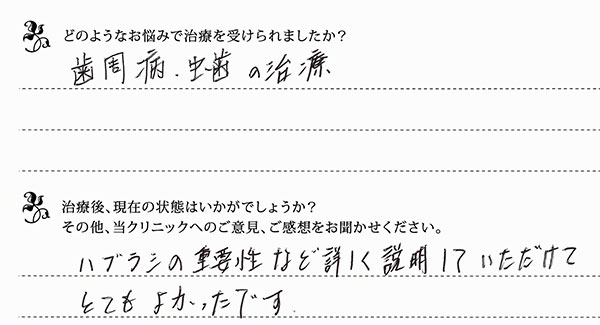 どのようなお悩みで治療を受けられましたか？
歯周病、虫歯の治療
治療後、現在の状態はいかがでしょうか？
その他、当クリニックへのご意見、ご感想をお聞かせください。
ハブラシの重要性など詳しく説明していただけて
とてもよかったです.